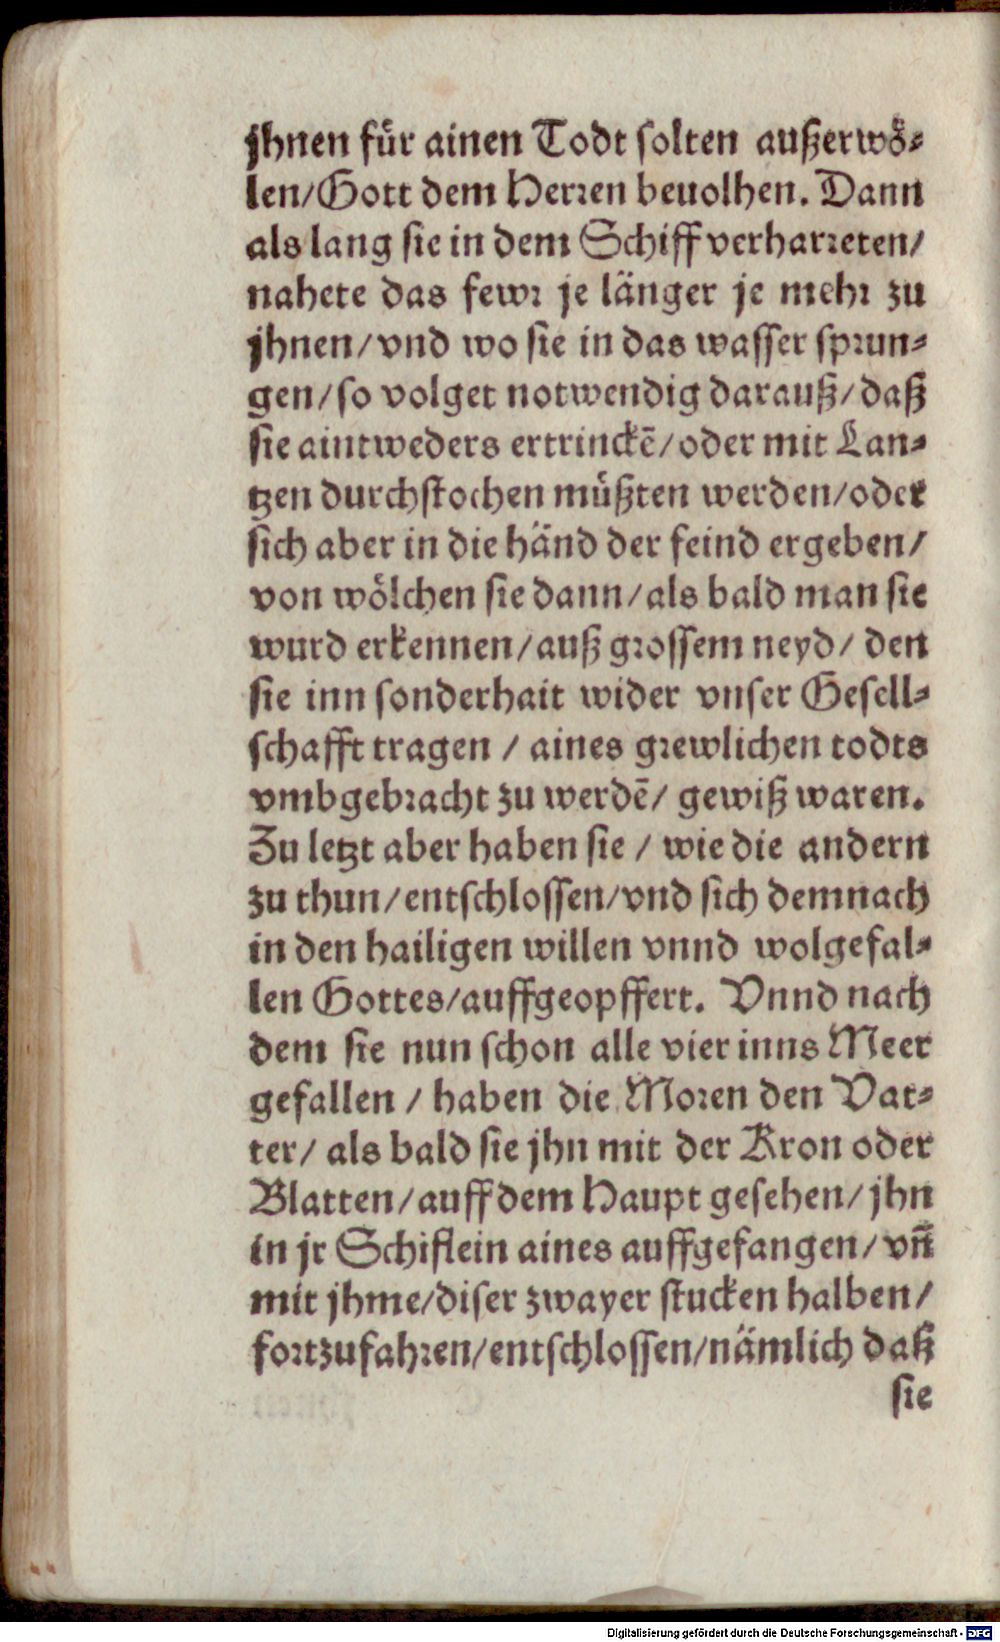 jhnen für ainen Todt solten außerwö⸗
len/Gott dem Herren beuolhen. Dann
als lang sie in dem Schiff verharreten/
nahete das fewr je länger je mehr zu
jhnen/vnd wo sie in das wasser sprun⸗
gen/so volget notwendig darauß/daß
sie aintweders ertrinckē/oder mit Lan⸗
tzen durchstochen müßten werden/oder
sich aber in die händ der feind ergeben/
von wölchen sie dann/als bald man sie
wurd erkennen/auß grossem neyd/ den
sie inn sonderhait wider vnser Gesell⸗
schafft tragen / aines grewlichen todts
vmbgebracht zu werdē/ gewiß waren.
Zu letzt aber haben sie / wie die andern
zu thun/entschlossen/vnd sich demnach
in den hailigen willen vnnd wolgefal⸗
len Gottes/auffgeopffert. Vnnd nach
dem sie nun schon alle vier inns Meer
gefallen / haben die Moren den Vat⸗
ter/ als bald sie jhn mit der Kron oder
Blatten/auff dem Haupt gesehen/ jhn
in jr Schiflein aines auffgefangen/ vñ
mit jhme/diser zwayer stucken halben/
fortzufahren/entschlossen/nämlich daß
sie
Digitalisierung gefördert durch die Deutsche Forschungsgemeinschaft - DFG